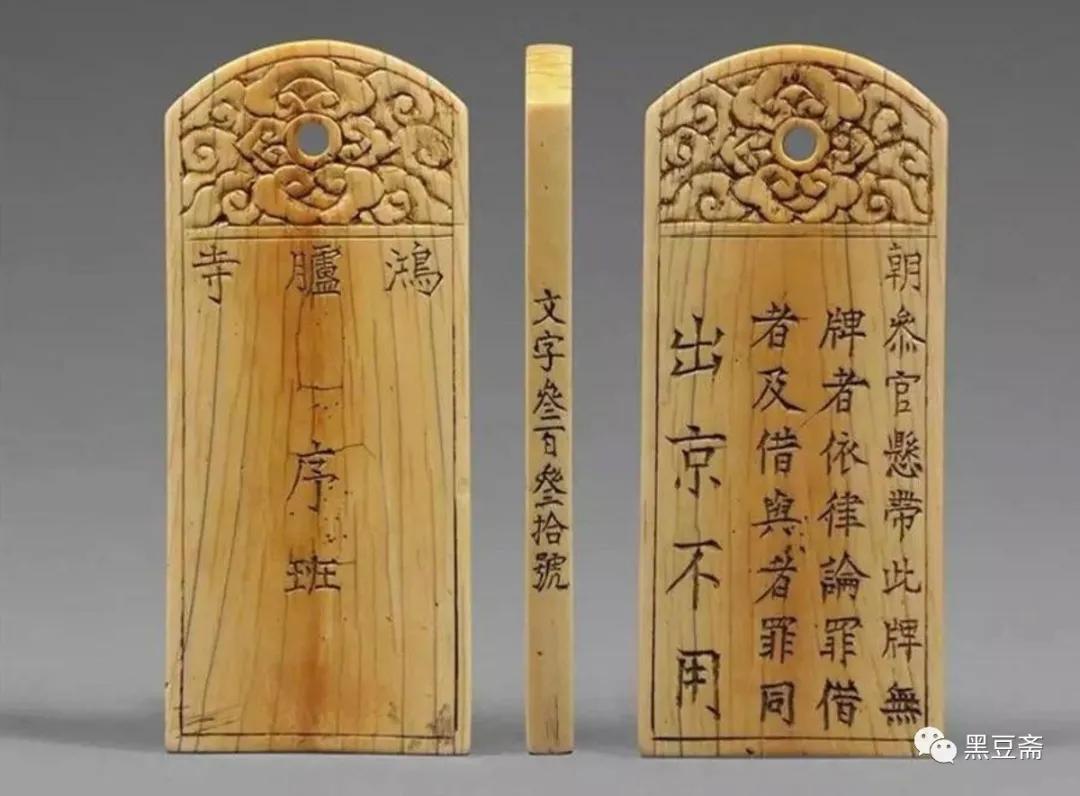 鴻臚寺
序班
文字叄百叄拾號
朝叅官懸帶此牌無
牌者依律論罪借
者及借與者罪同
出京不用
黑豆斋